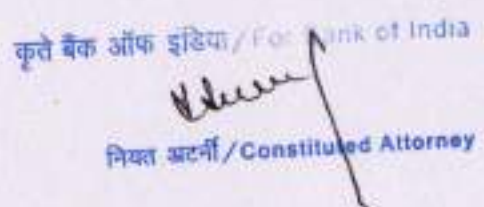 कृते बैंक ऑफ इंडिया/For Bank of India
नियत अटर्नी/Constituted Attorney